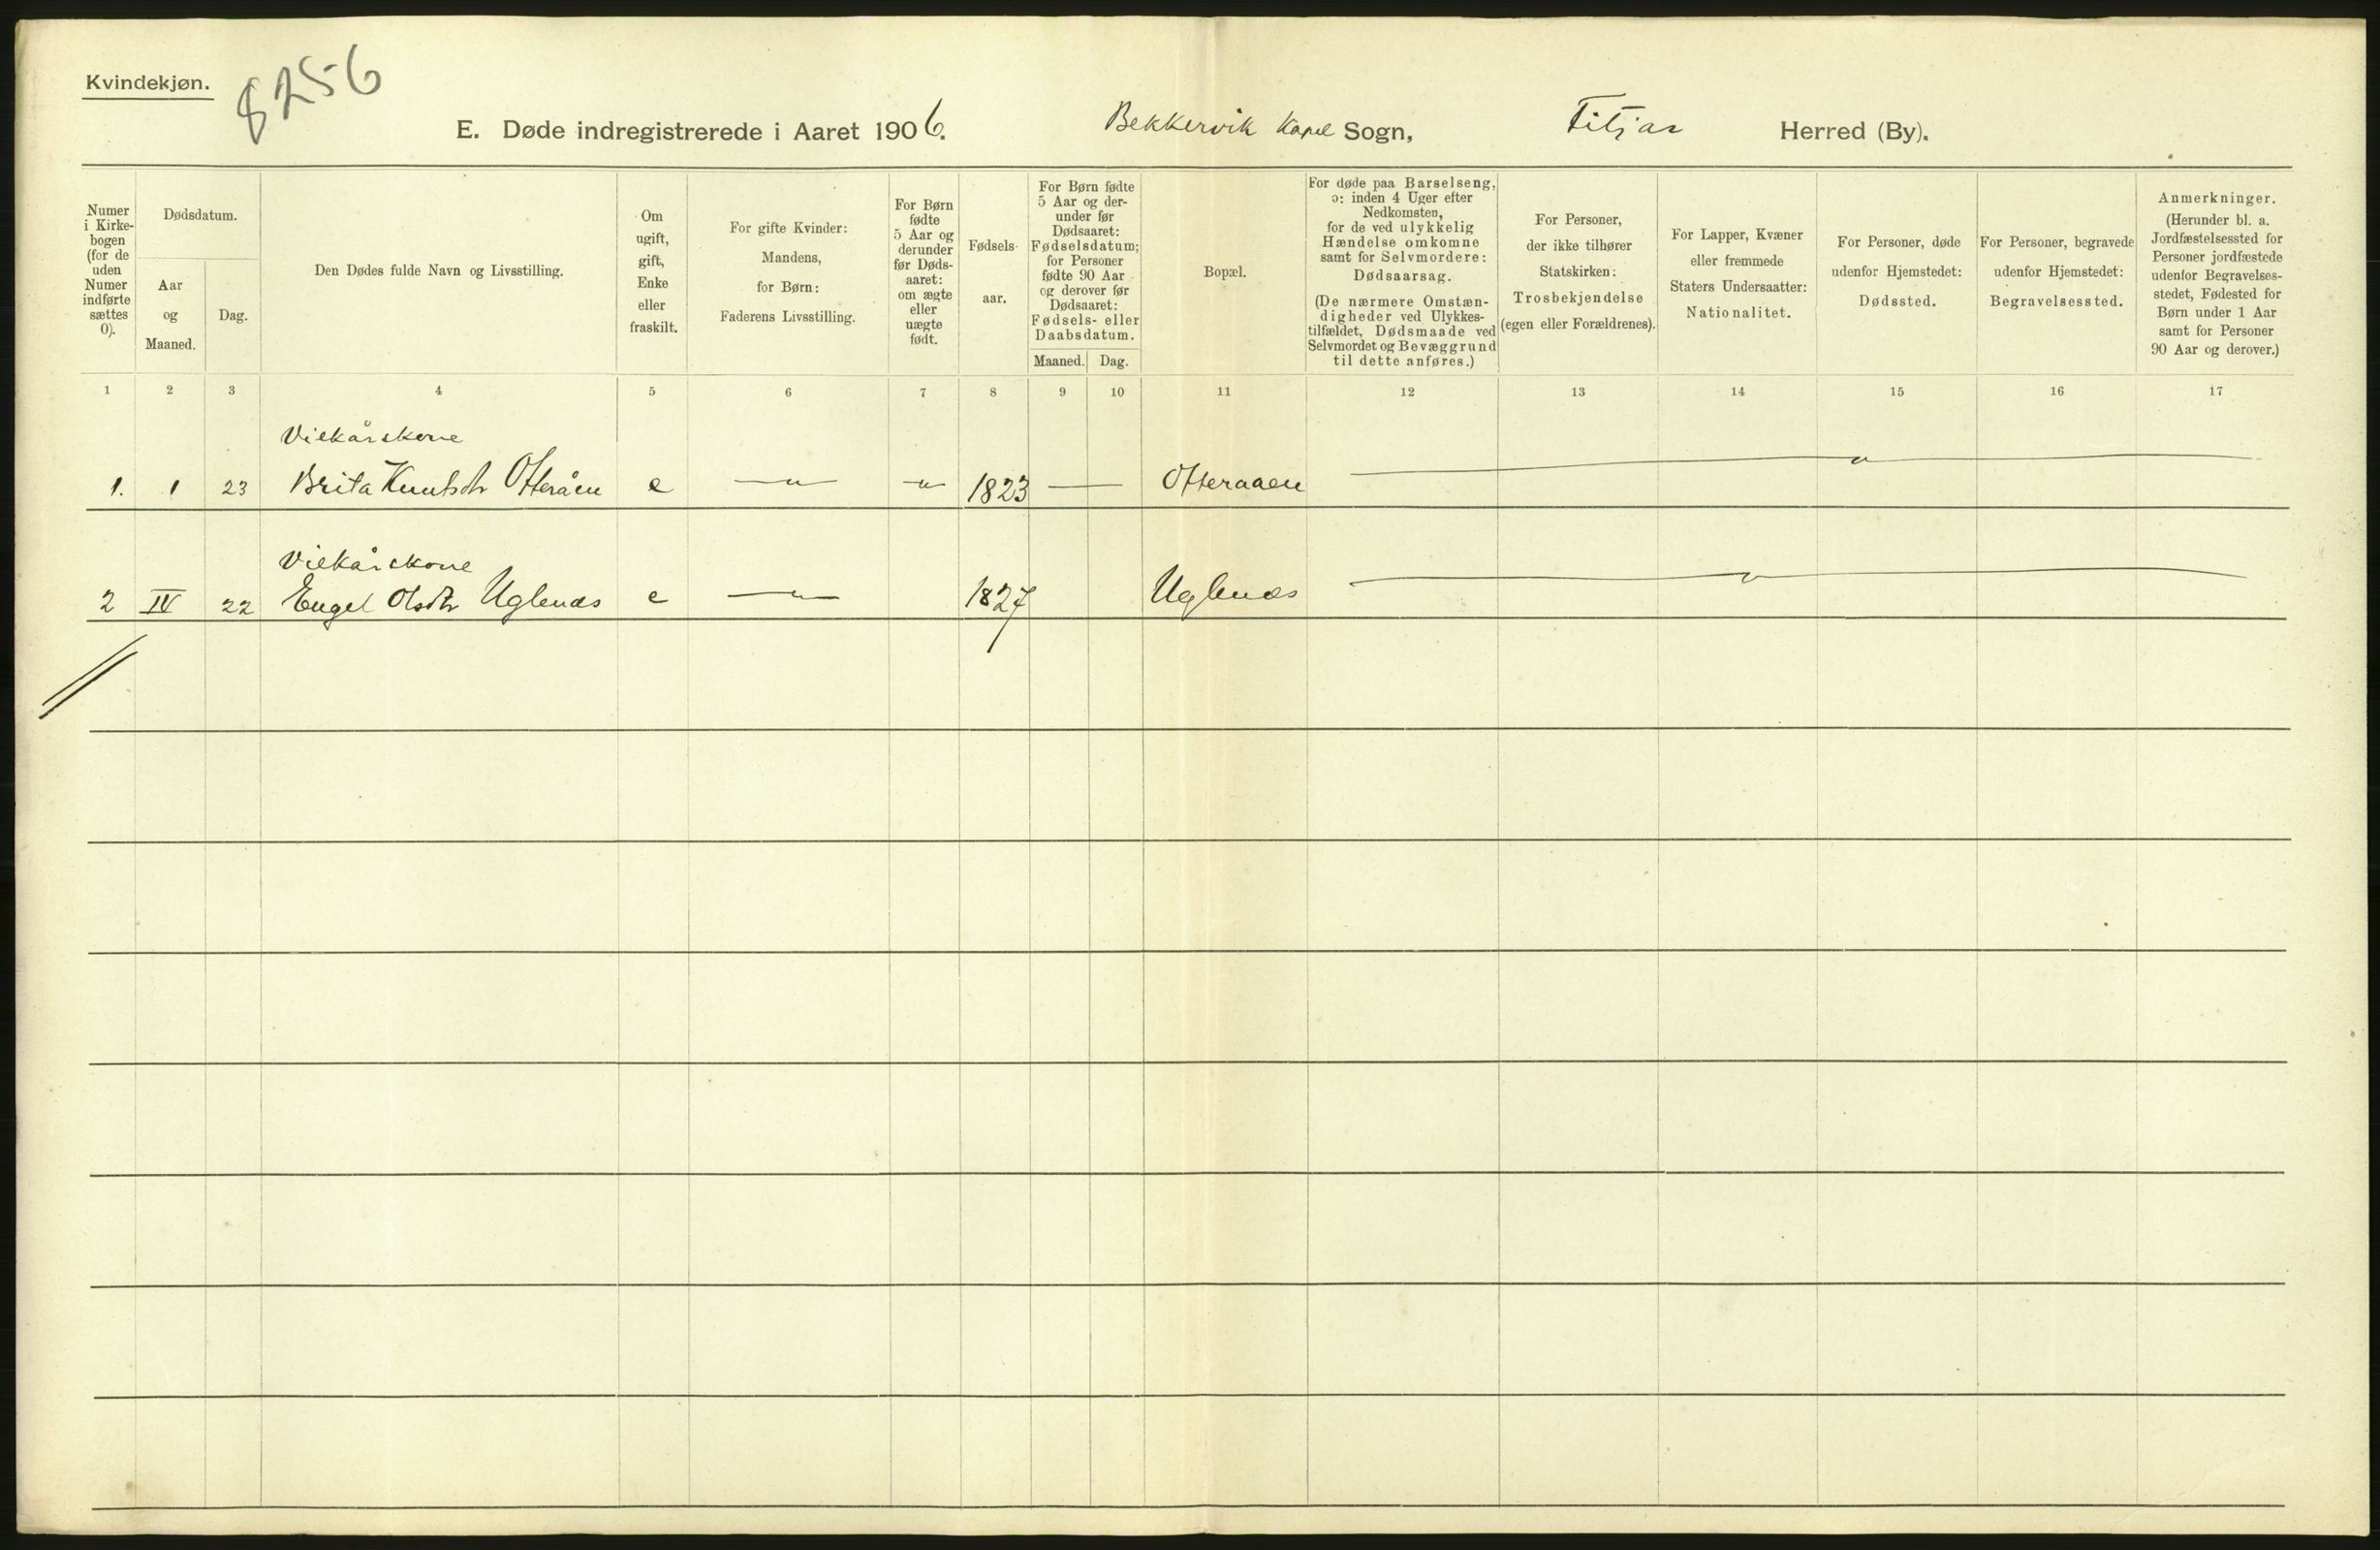 Kvindekjøn.
8256
E. Døde indregistrerede i Aaret 1906.
Bekkervik Kapel Sogn,
Fitjar Herred (By).
Numer i Kirke-
bogen
(for de
uden
Numer
indførte
sættes
0).
Dødsdatum.
Aar
og
Maaned.
Dag.
Den Dødes fulde Navn og Livsstilling.
Om
ugift,
gift,
Enke
eller
fraskilt.
For gifte Kvinder:
Mandens,
for Børn:
Faderens Livsstilling.
For Børn
fødte
5 Aar og
derunder
før Døds-
aaret:
om ægte
eller
uægte
født.
Fødsels-
aar.
For Børn fødte
5 Aar og der-
under før
Dødsaaret:
Fødselsdatum;
for Personer
fødte 90 Aar
og derover før
Dødsaaret:
Fødsels- eller
Daabsdatum.
Maaned. Dag.
Bopæl.
For døde paa Barselseng,
ɔ: inden 4 Uger efter
Nedkomsten,
for de ved ulykkelig
Hændelse omkomne
samt for Selvmordere:
Dødsaarsag.
(De nærmere Omstæn-
digheder ved Ulykkes-
tilfældet, Dødsmaade ved
Selvmordet og Bevæggrund
til dette anføres.)
For Personer,
der ikke tilhører
Statskirken:
Trosbekjendelse
(egen eller Forældrenes).
For Lapper, Kvæner
eller fremmede
Staters Undersaatter:
Nationalitet.
For Personer, døde
udenfor Hjemstedet:
Dødssted.
For Personer, begravede
udenfor Hjemstedet:
Begravelsessted.
Anmerkninger.
(Herunder bl. a.
Jordfæstelsessted for
Personer jordfæstede
udenfor Begravelses-
stedet, Fødested for
Børn under 1 Aar
samt for Personer
90 Aar og derover.)
1 2 3 4 5 6 7 8 9 10 11 12 13 14 15 16 17
Vilkårskone
1. 1 23 Brita Knutsdr Ofteråen e — " — — " — 1823 — Ofteraaen — " —
Vilkårskone
2 IV 22 Engel Olsdtr Uglenæs e — " — 1827 Uglenæs — " —